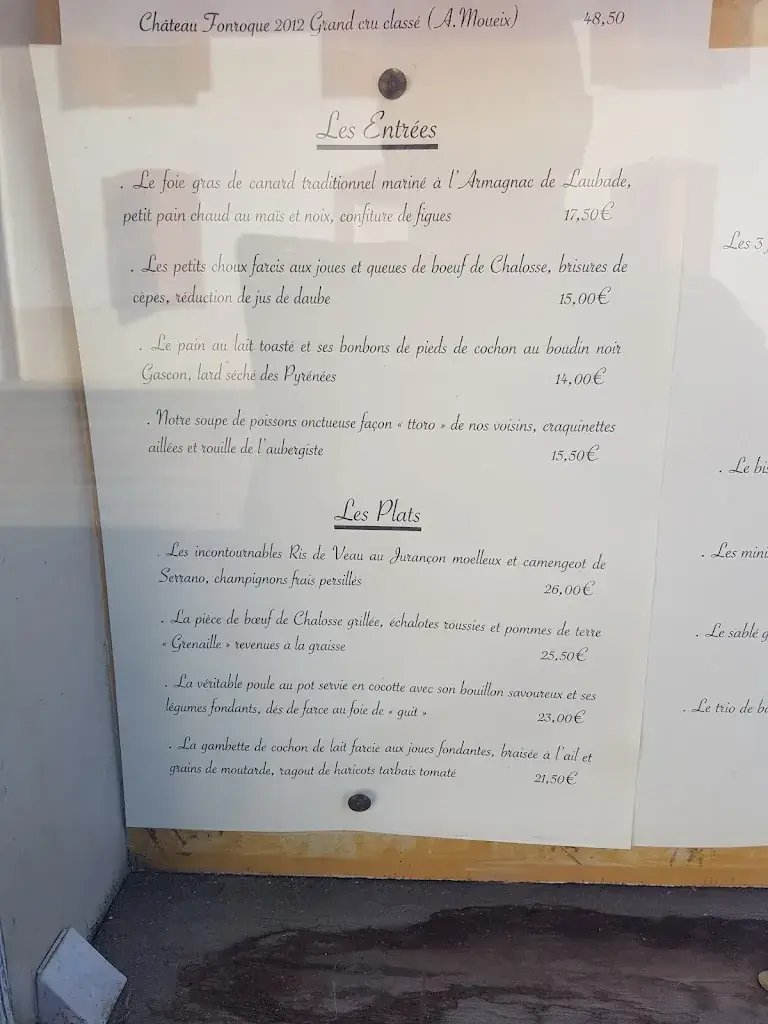 Château Fonroque 2012 Grand cru classé (A.Moueix) 48,50
Les Entrées
. Le foie gras de canard traditionnel mariné à l'Armagnac de Laubade,
petit pain chaud au maïs et noix, confiture de figues 17,50€
. Les petits choux farcis aux joues et queues de boeuf de Chalosse, brisures de
cèpes, réduction de jus de daube 15,00€
. Le pain au lait toasté et ses bonbons de pieds de cochon au boudin noir
Gascon, lard séché des Pyrénées 14,00€
. Notre soupe de poissons onctueuse façon « ttoro » de nos voisins, craquinettes
aillées et rouille de l'aubergiste 15,50€
Les Plats
. Les incontournables Ris de Veau au Jurançon moelleux et camengeot de
Serrano, champignons frais persillés 26,00€
. La pièce de bœuf de Chalosse grillée, échalotes roussies et pommes de terre
« Grenaille » revenues à la graisse 25,50€
. La véritable poule au pot servie en cocotte avec son bouillon savoureux et ses
légumes fondants, des de farce au foie de « guit » 23,00€
. La gambette de cochon de lait farcie aux joues fondantes, braisée à l'ail et
grains de moutarde, ragout de haricots tarbais tomaté 21,50€
Les 3
. Le
. Les
. Le sablé
. Le trio de